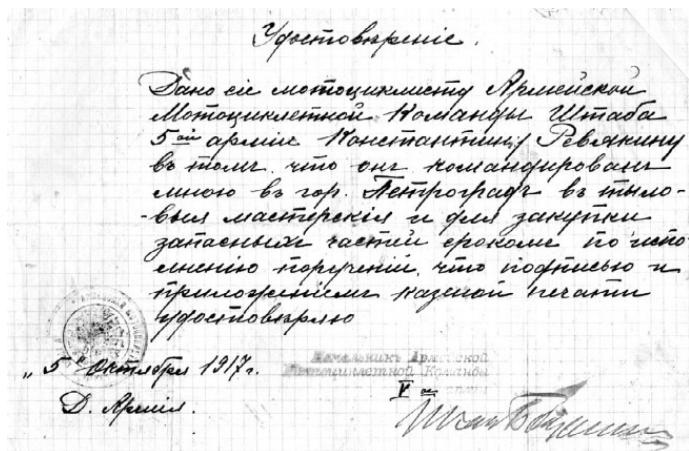 Удостовѣреніе.
Дано сіе мотоциклисту Армейской
Мотоциклетной Команды Штаба
5ой арміи Константину Ревякину
въ томъ, что онъ командированъ
мною въ гор. Петроградъ въ тыло-
-выя мастерскія и для закупки
запасныхъ частей срокомъ по испо-
лненію порученій, что подписью и
приложеніемъ казеной печати
удостовѣряю
„5 Октября 1917г.
Начальникъ Армейской
Мотоциклетной Команды
V ой
Д. Армія.